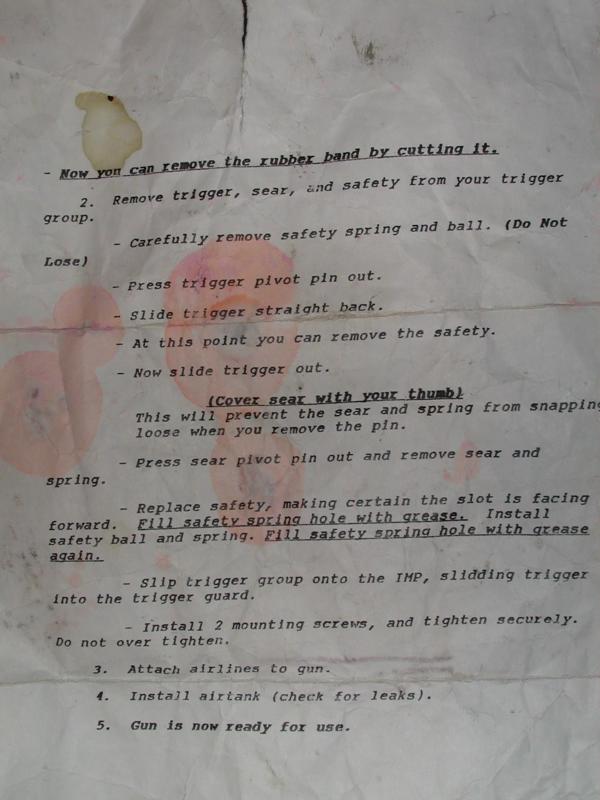 - Now you can remove the rubber band by cutting it.
2. Remove trigger, sear, and safety from your trigger
group.
- Carefully remove safety spring and ball. (Do Not
Lose)
- Press trigger pivot pin out.
- Slide trigger straight back.
- At this point you can remove the safety.
- Now slide trigger out.
(Cover sear with your thumb)
This will prevent the sear and spring from snapping
loose when you remove the pin.
- Press sear pivot pin out and remove sear and
spring.
- Replace safety, making certain the slot is facing
forward. Fill safety spring hole with grease. Install
safety ball and spring. Fill safety spring hole with grease
again.
- Slip trigger group onto the IMP, slidding trigger
into the trigger guard.
- Install 2 mounting screws, and tighten securely.
Do not over tighten.
3. Attach airlines to gun.
4. Install airtank (check for leaks).
5. Gun is now ready for use.